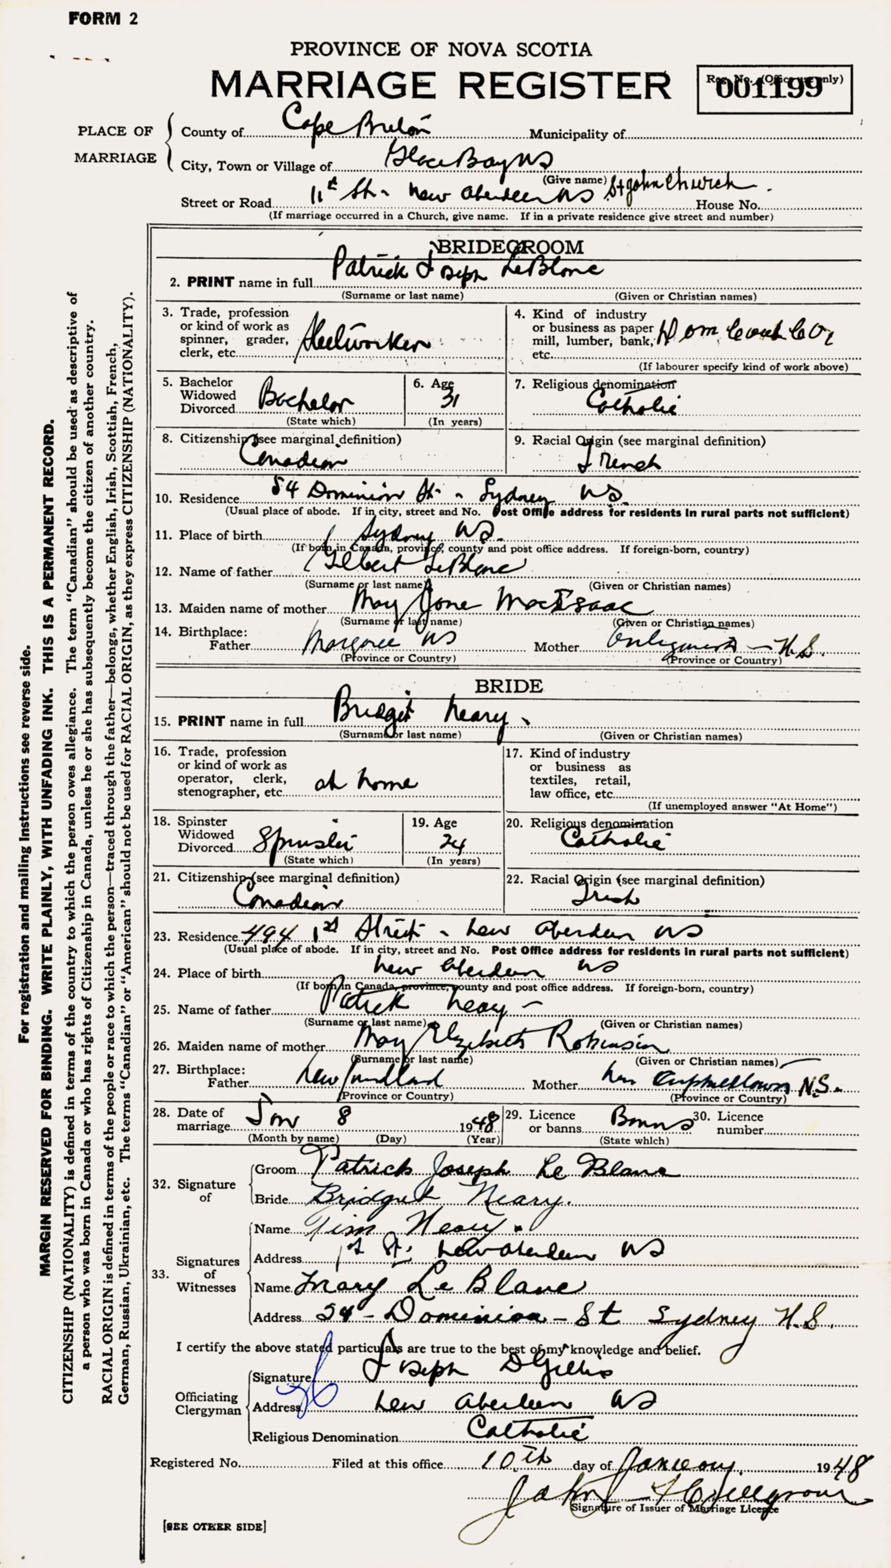 FORM 2
PROVINCE OF NOVA SCOTIA
MARRIAGE REGISTER
Reg. No. (Office use only)
001199
PLACE OF MARRIAGE
County of Cape Breton Municipality of
City, Town or Village of Glace Bay NS
(Give name) St John Church.
Street or Road 11th St. New Aberdeen NS House No.
(If marriage occurred in a Church, give name. If in a private residence give street and number)
BRIDEGROOM
2. PRINT name in full Patrick Joseph LeBlanc
(Surname or last name) (Given or Christian names)
3. Trade, profession or kind of work as spinner, grader, clerk, etc. Steelworker
4. Kind of industry or business as paper mill, lumber, bank, etc. Dom
(If labourer specify kind of work above)
5. Bachelor Widowed Divorced Bachelor
(State which)
6. Age 31
(In years)
7. Religious denomination Catholic
8. Citizenship (see marginal definition)
Canadian
9. Racial Origin (see marginal definition)
French
10. Residence 54 Dominion St. - Sydney NS.
(Usual place of abode. If in city, street and No. Post Office address for residents in rural parts not sufficient)
11. Place of birth Sydney NS.
(If born in Canada, province, county and post office address. If foreign-born, country)
12. Name of father Gelbert LeBlanc
(Surname or last name) (Given or Christian names)
13. Maiden name of mother May Jane MacIsaac
(Surname or last name) (Given or Christian names)
14. Birthplace: Father Margaree NS Mother Antigonish - N.S.
(Province or Country) (Province or Country)
BRIDE
15. PRINT name in full Bridget Neary
(Surname or last name) (Given or Christian names)
16. Trade, profession or kind of work as operator, clerk, stenographer, etc. at home
17. Kind of industry or business as textiles, retail, law office, etc.
(If unemployed answer "At Home")
18. Spinster Widowed Divorced Spinster
(State which)
19. Age 24
(In years)
20. Religious denomination Catholic
21. Citizenship (see marginal definition)
Canadian
22. Racial Origin (see marginal definition)
Irish
23. Residence 494 1st Street - New Aberdeen NS
(Usual place of abode. If in city, street and No. Post Office address for residents in rural parts not sufficient)
24. Place of birth New Aberdeen NS
(If born in Canada, province, county and post office address. If foreign-born, country)
25. Name of father Patrick Neary -
(Surname or last name) (Given or Christian names)
26. Maiden name of mother May Elizabeth Robinson
(Surname or last name) (Given or Christian names)
27. Birthplace: Father Newfoundland Mother New Campbellton N.S.
(Province or Country) (Province or Country)
28. Date of marriage Jan 8 1948
(Month by name) (Day) (Year)
29. Licence or banns Banns
(State which)
30. Licence number
32. Signature of
Groom Patrick Joseph LeBlanc
Bride Bridget Neary.
33. Signatures of Witnesses
Name Tim Neary.
Address 1st St. New Aberdeen NS
Name Mary LeBlanc
Address 54 - Dominion - St Sydney N.S.
I certify the above stated particulars are true to the best of my knowledge and belief.
Officiating Clergyman
Signature Joseph D Gillis
Address New Aberdeen NS
Religious Denomination Catholic
Registered No. Filed at this office 10th day of January, 1948
John
Signature of Issuer of Marriage Licence
[SEE OTHER SIDE]
For registration and mailing instructions see reverse side.
MARGIN RESERVED FOR BINDING. WRITE PLAINLY, WITH UNFADING INK. THIS IS A PERMANENT RECORD.
CITIZENSHIP (NATIONALITY) is defined in terms of the country to which the person owes allegiance. The term "Canadian" should be used as descriptive of
a person who was born in Canada or who has rights of Citizenship in Canada, unless he or she has subsequently become the citizen of another country.
RACIAL ORIGIN is defined in terms of the people or race to which the person—traced through the father—belongs, whether English, Irish, Scottish, French,
German, Russian, Ukrainian, etc. The terms "Canadian" or "American" should not be used for RACIAL ORIGIN, as they express CITIZENSHIP (NATIONALITY).